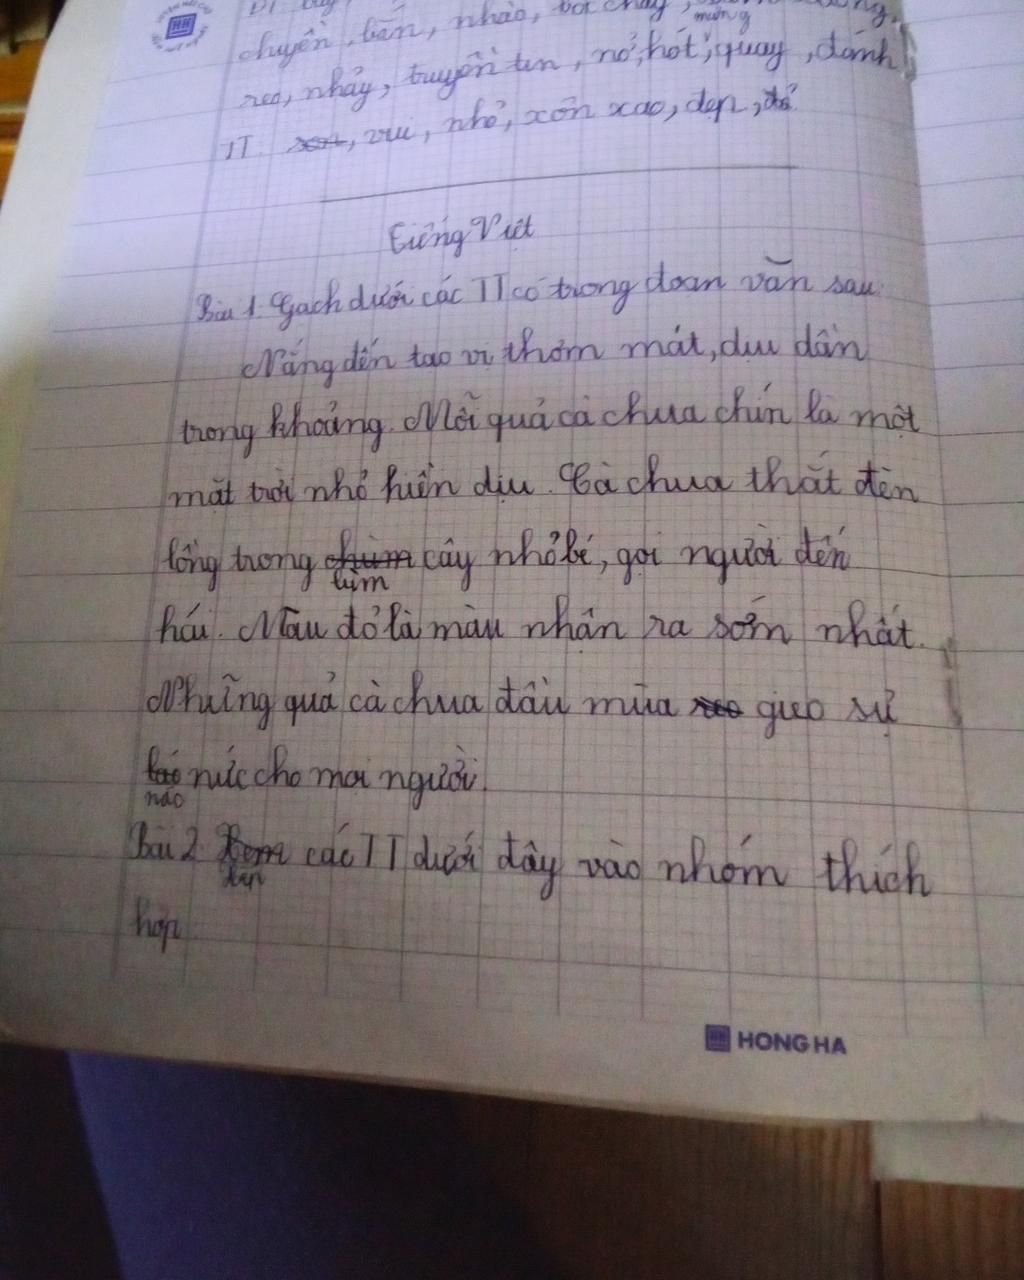 chuyền, bắn, nhào, bơi chảy,
mừng
reo, nhảy, truyền tin, nở, hót, quay, đánh
TT. vui, nhỏ, xôn xao, đẹp, đỏ
Tiếng Việt
Bài 1. Gạch dưới các TT có trong đoạn văn sau:
Nắng đến tạo vị thơm mát, dịu dần
trong khoảng. Mỗi quả cà chua chín là một
mặt trời nhỏ hiền dịu. Cà chua thắt đèn
lồng trong chùm cây nhỏ bé, gọi người đến
lùm
hái. Màu đỏ là màu nhận ra sớm nhất.
Những quả cà chua đầu mùa reo gieo sự
láo nức cho mọi người.
náo
Bài 2 Xem các TT dưới đây vào nhóm thích
hợp
HONG HA